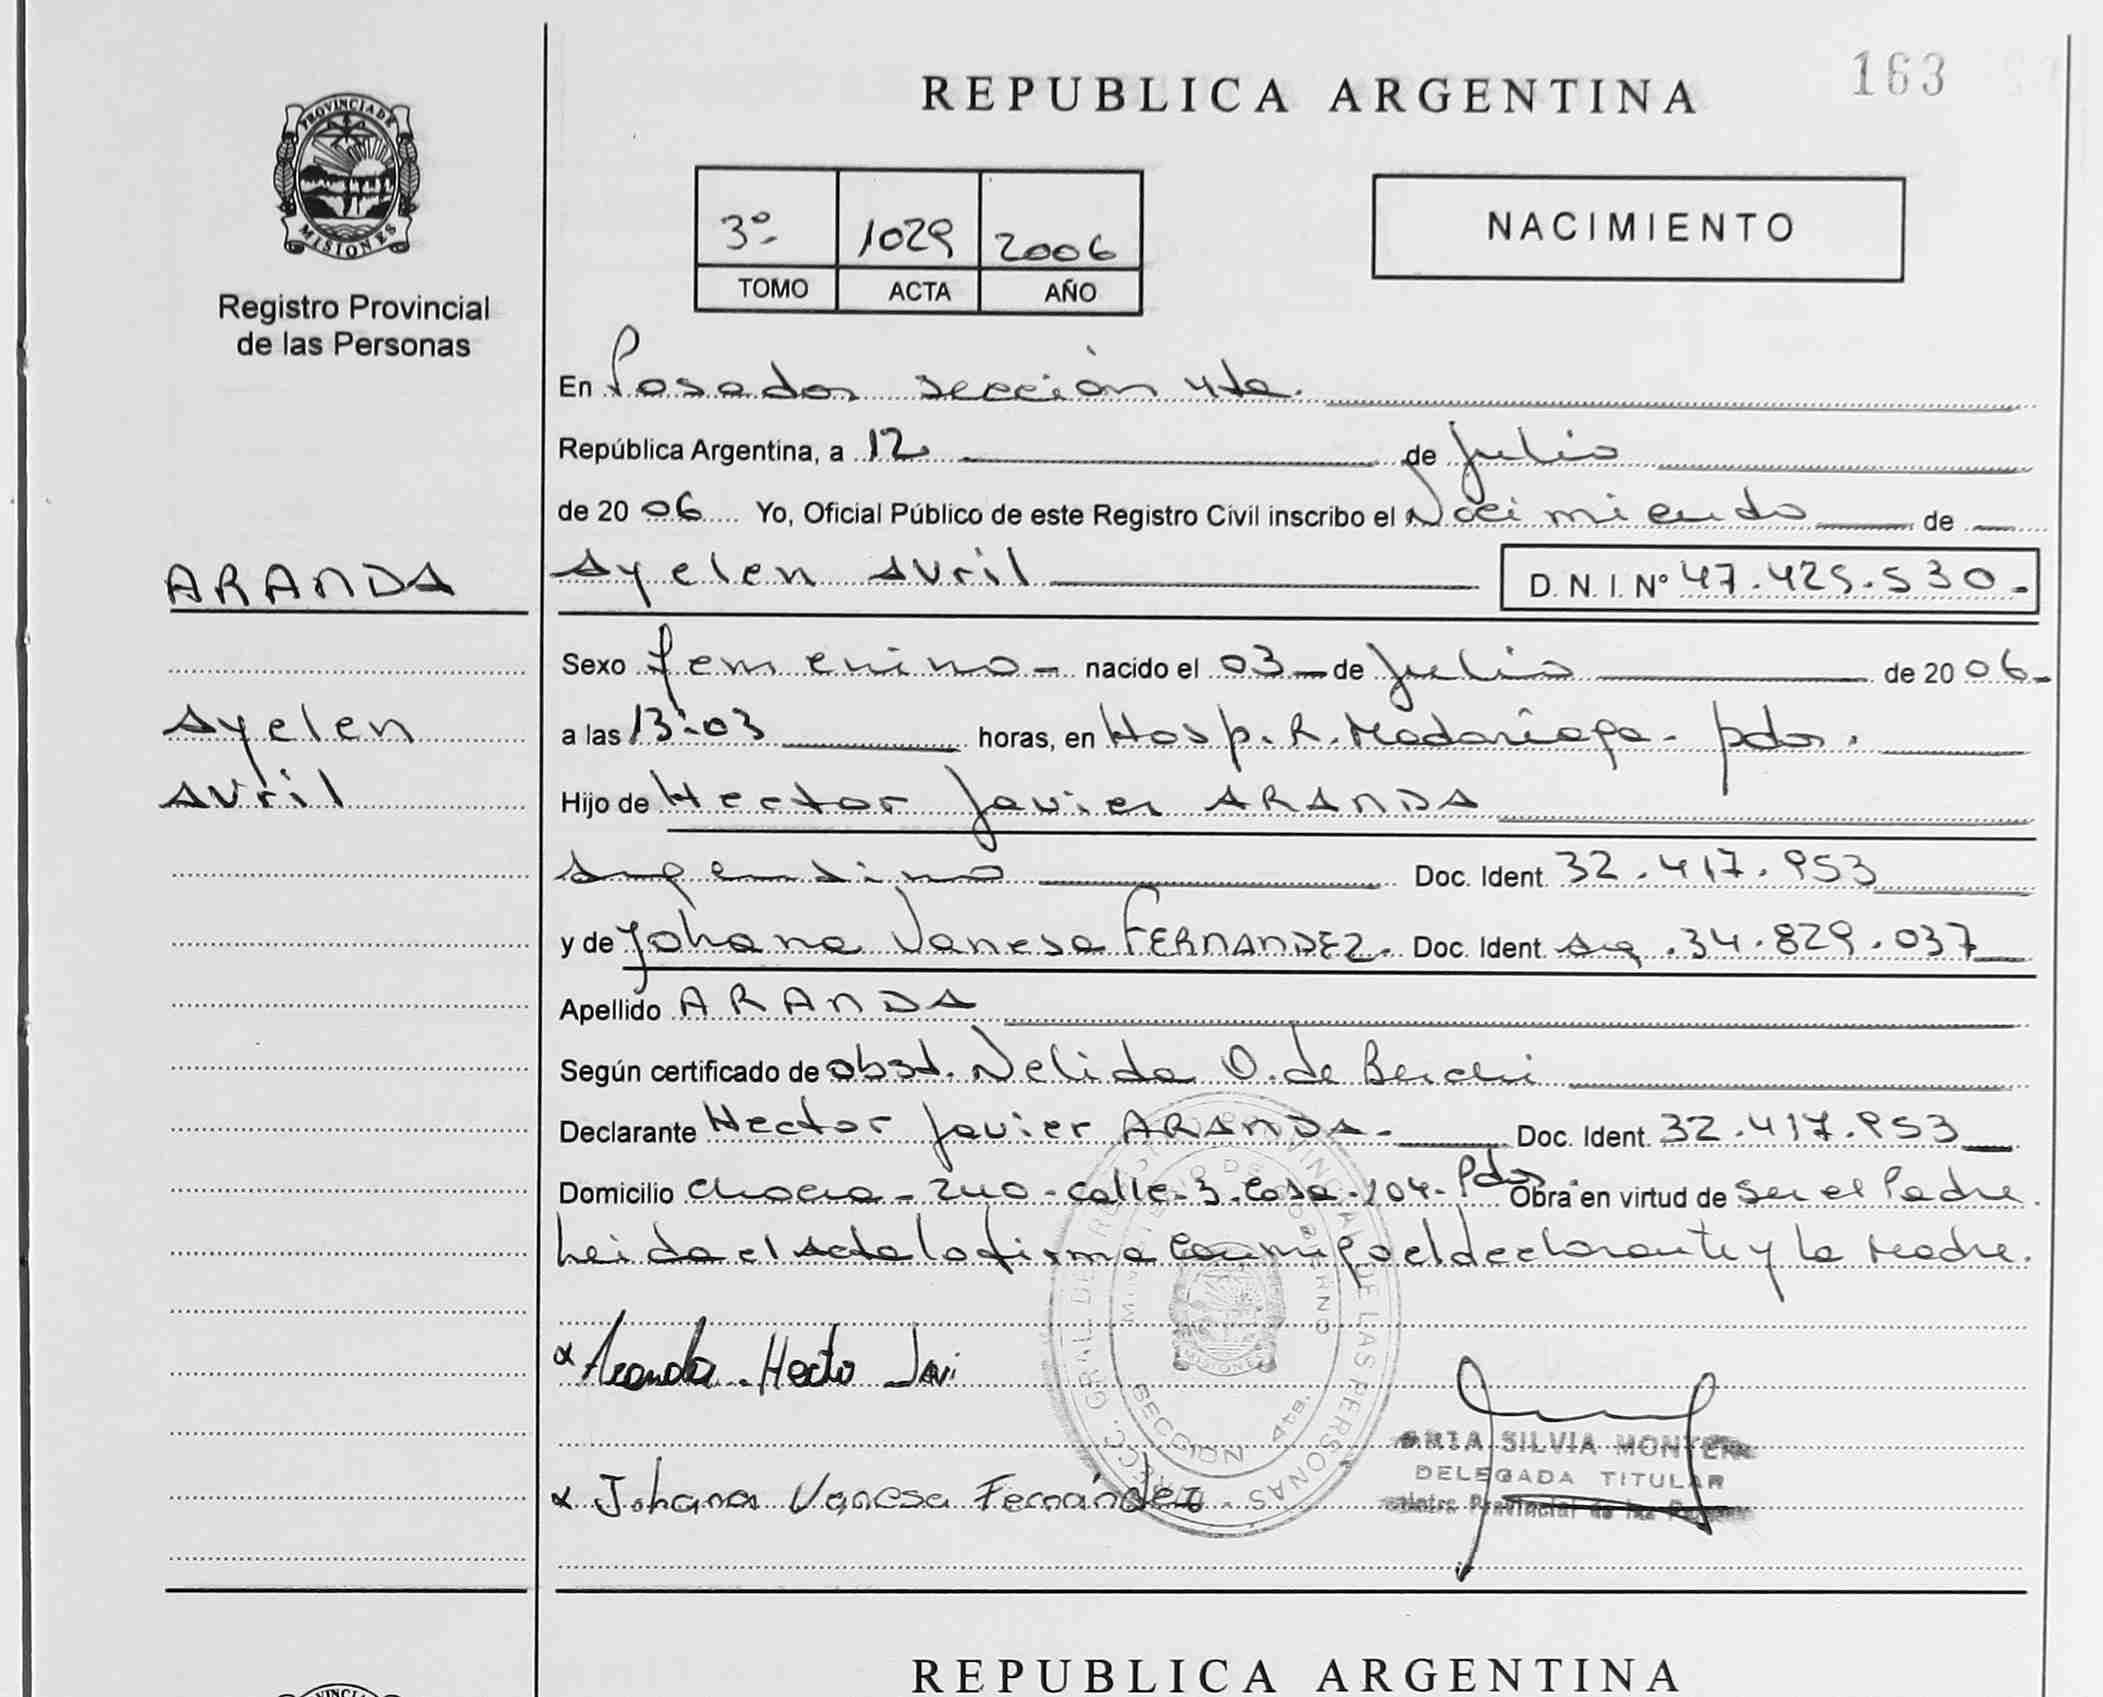 163
REPUBLICA ARGENTINA
PROVINCIA DE
MISIONES
Registro Provincial
de las Personas
3º- 1029 2006
TOMO ACTA AÑO
NACIMIENTO
En Posadas sección 4ta.
República Argentina, a 12 de Julio
de 2006 Yo, Oficial Público de este Registro Civil inscribo el Nacimiento de
ARANDA
Ayelen Avril D. N. I. Nº 47.425.530.-
Sexo femenino - nacido el 03 de Julio de 2006-
Ayelen
a las 13:03 horas, en Hosp. R. Madariaga - pdas.
Avril
Hijo de Hector Javier ARANDA
Argentino Doc. Ident. 32.417.953
y de Johana Vanesa FERNANDEZ. Doc. Ident. Arg. 34.829.037
Apellido ARANDA
Según certificado de obst. Nelida O. de
Declarante Hector Javier ARANDA - Doc. Ident. 32.417.953
Domicilio Chacra - 240 - calle - 3 - Casa - 104 - Pdas. Obra en virtud de ser el Padre.
Leida el Acta la firma conmigo el declarante y la Madre.
Aranda Hecto Javi
Johana Vanesa Fernández
SILVIA
DELEGADA TITULAR
Provincial de las
MINISTERIO DE GOBIERNO
SECCION 4ta.
MISIONES
REPUBLICA ARGENTINA